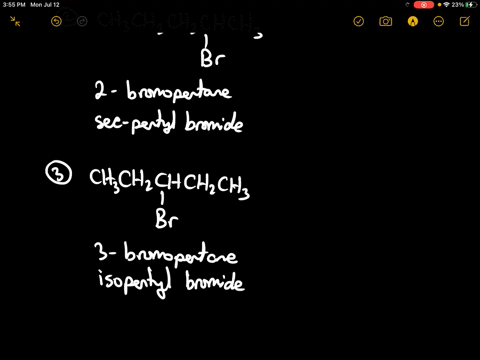 3:55 PM Mon Jul 12
23%
CH3CH2CH2CHCH3
Br
2- bromopentane
sec-pentyl bromide
3
CH3CH2CHCH2CH3
Br
3- bromopentane
isopentyl bromide